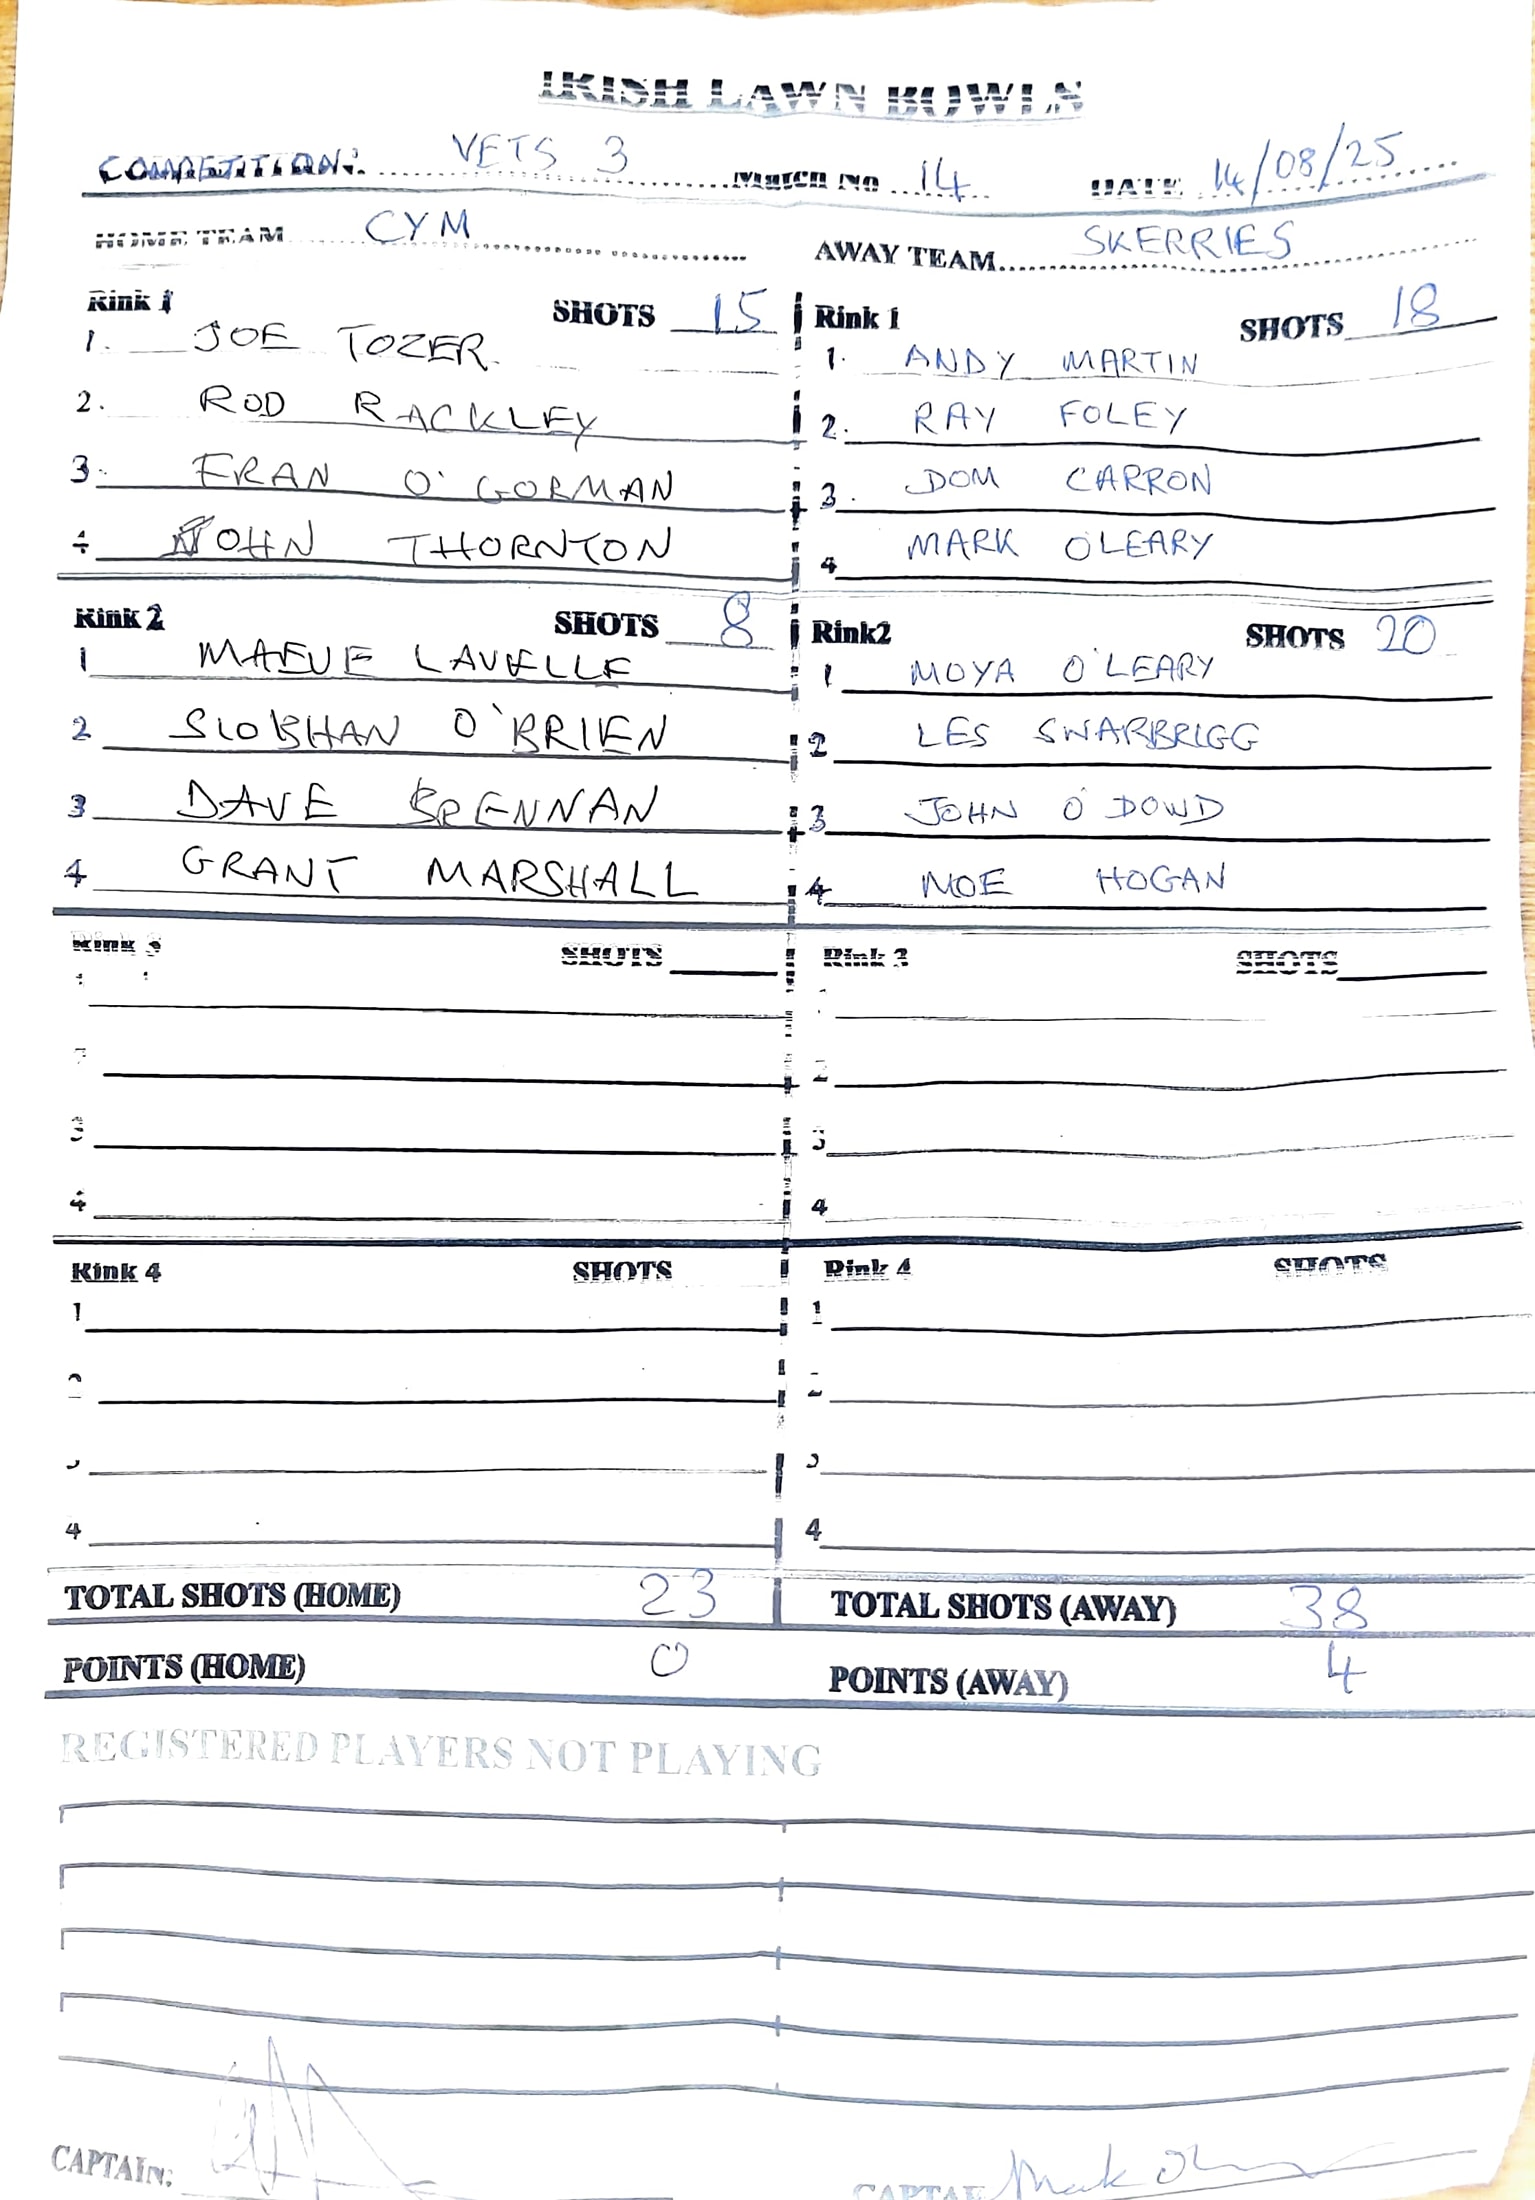 IRISH LAWN BOWLS
COMPETITION: VETS 3 Match No 14 DATE 14/08/25
HOME TEAM CYM AWAY TEAM SKERRIES
Rink 1 SHOTS 15 Rink 1 SHOTS 18
1. JOE TOZER 1. ANDY MARTIN
2. ROD RACKLEY 2. RAY FOLEY
3. FRAN O'GORMAN 3. DOM CARRON
4 JOHN THORNTON 4 MARK O'LEARY
Rink 2 SHOTS 8 Rink2 SHOTS 20
1 MAEVE LAVELLE 1 MOYA O'LEARY
2 SIOBHAN O'BRIEN 2 LES SWARBRIGG
3 DAVE BRENNAN 3 JOHN O'DOWD
4 GRANT MARSHALL 4 MOE HOGAN
Rink 3 SHOTS Rink 3 SHOTS
1
2 2
3 3
4 4
Rink 4 SHOTS Rink 4 SHOTS
1 1
2 2
3 3
4 4
TOTAL SHOTS (HOME) 23 TOTAL SHOTS (AWAY) 38
POINTS (HOME) 0 POINTS (AWAY) 4
REGISTERED PLAYERS NOT PLAYING
CAPTAIN: Mark